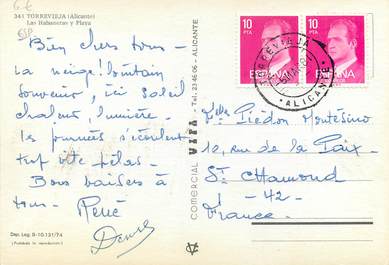 G.E
ESP
341 TORREVIEJA (Alicante)
Las Habaneras y Playa
Bien chers tous -
La neige! lointain
souvenir, ici soleil
chaleur, lumière.
Les journées s'écoulent
trop vite hélas.
Bons baisers à
tous - René
Denise
Dep. Leg. B-10.131/74
(Prohibida la reproducción)
COMERCIAL VIPA - Tel. 23 46 06 - ALICANTE
10
PTA
ESPAÑA
10
PTA
ESPAÑA
TORREVIEJA
ALICANTE
Piédon Montésino
12, rue de la Paix
St Chamond
- 42 -
France